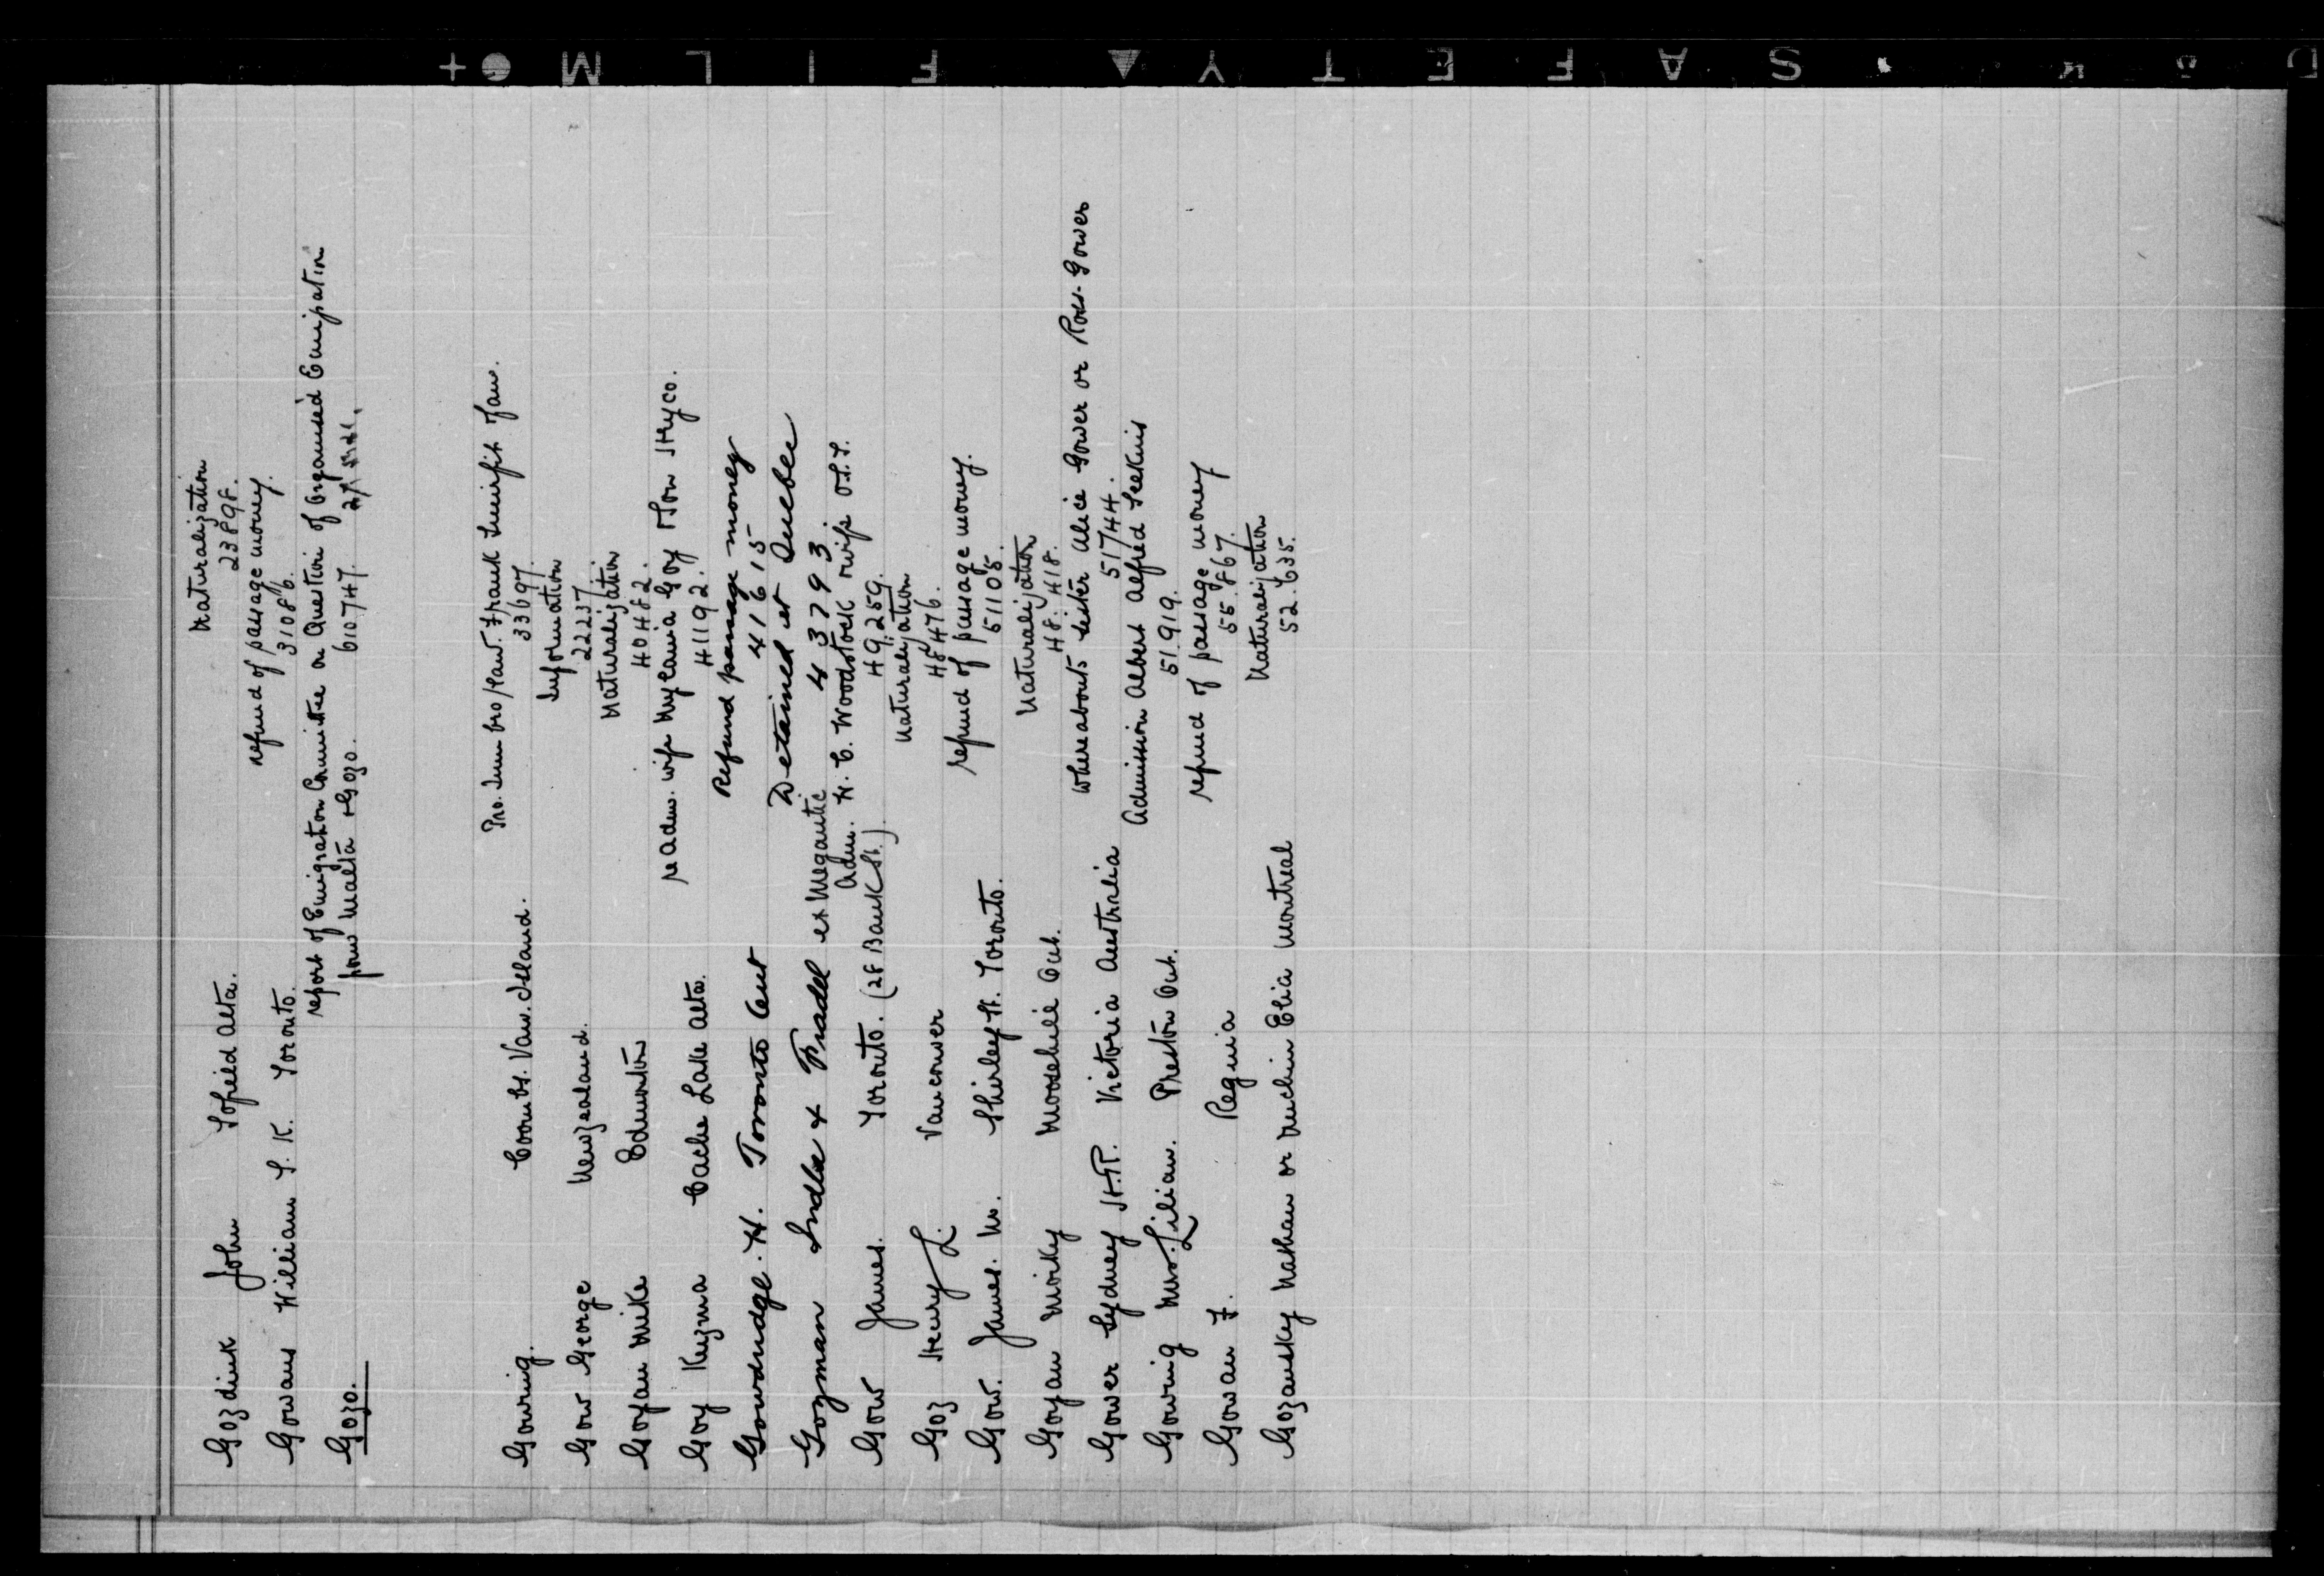 Gozdink John Tofield Alta. Naturalization
23898.
Gowans William S. K. Toronto. refund of passage money.
31086.
Gozo. report of Emigration Committee on Question of Organised Emigration
from Malta & Gozo. 610747.
Gowing. Coombs. Van. Island. Frank fam.
33697.
Gow George New Zealand. Information
22237.
Goyan Mike Edmonton Naturalization
40482.
Goy Kuzma Cache Lake Alta. re adm. wife Goy & Son
41192.
Gowdridge. H. Toronto Cent Refund passage money
41615
Gozman Indla & Fradel ex Megantic Detained at Quebec
43793
Gow James. Toronto. (28 Bank St.) Adm. H. C. Woodstock & wife
49259.
Goz Henry L. Vancouver Naturalization
48476.
Gow. James. M. Shirley St. Toronto. refund of passage money.
51105.
Goyan Moisky Moosehill Ont. Naturalization
48.418.
Gower Sydney St.R. Victoria Australia Whereabouts sister Alice Gower or Ross-Gower
51744.
Gowing Mrs. Lilian. Preston Ont. Admission Albert Alfred Seekins
51.919.
Gowan F. Regina refund of passage money
55.867.
Gozansky Nathan or Elia Montreal Naturalization
52.635.
SAFETY ▲ FILM ● +